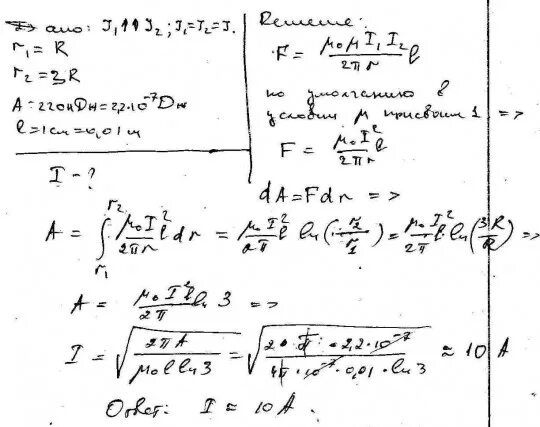 дано: I₁↑↑I₂; I₁=I₂=I.
r₁ = R
r₂ = 3R
A = 220нДж = 2,2·10⁻⁷Дж
l = 1см = 0,01м
I - ?
Решение:
F = μ₀μI₁I₂/2πr l
по умолчанию в
условии μ присвоим 1 =>
F = μ₀I²/2πr l
dA = Fdr =>
A = ∫_{r₁}^{r₂} μ₀I²/2πr l dr = μ₀I²/2π l ln(r₂/r₁) = μ₀I²/2π l ln(3R/R) =>
A = μ₀I²l/2π ln 3 =>
I = √(2πA/μ₀l ln3) = √(2·π·2,2·10⁻⁷/4π·10⁻⁷·0,01·ln3) ≈ 10 A
Ответ: I ≈ 10 A.